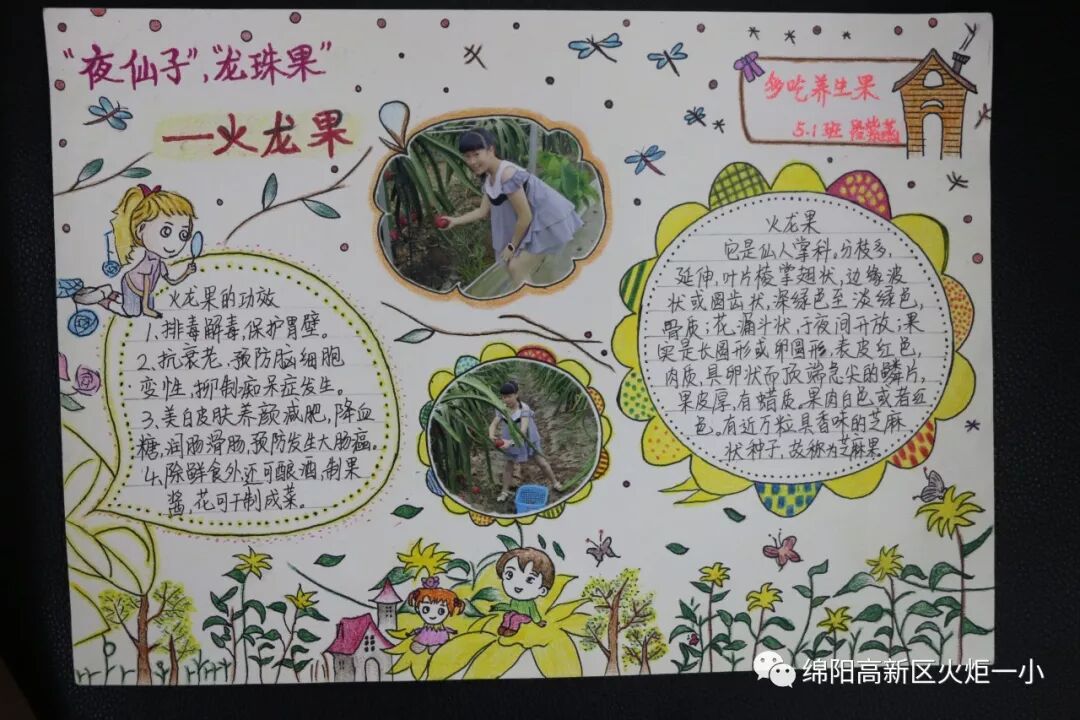 “夜仙子”，“龙珠果”
—火龙果
多吃养生果
5.1班
火龙果的功效
1、排毒解毒,保护胃壁。
2、抗衰老，预防脑细胞
变性，抑制痴呆症发生。
3、美白皮肤养颜减肥，降血
糖，润肠滑肠，预防发生大肠癌。
4、除鲜食外还可酿酒，制果
酱，花可干制成菜。
火龙果
它是仙人掌科。分枝多，
延伸，叶片棱掌翅状，边缘波
状或圆齿状，深绿色至淡绿色，
骨质；花漏斗状，于夜间开放；果
实是长圆形或卵圆形，表皮红色，
肉质，具卵状而顶端急尖的鳞片，
果皮厚，有蜡质。果肉白色或者红
色。有近万粒具香味的芝麻
状种子，故称为芝麻果
绵阳高新区火炬一小